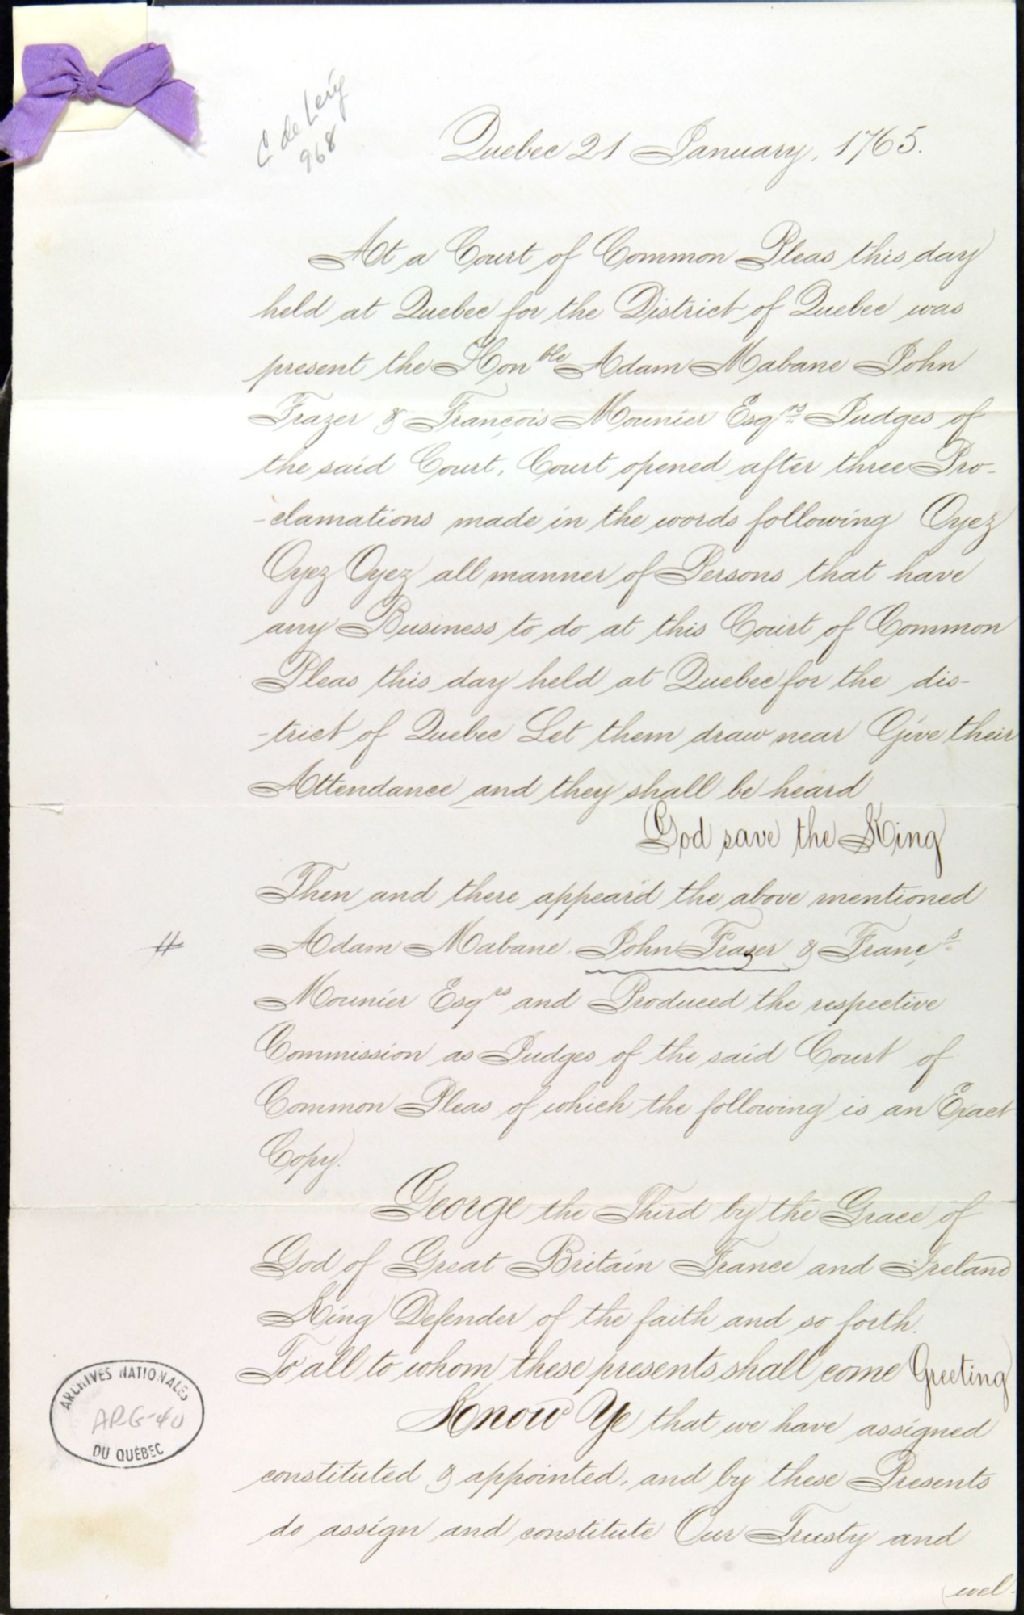 C de Lery
968
Quebec 21 January, 1765.
At a Court of Common Pleas this day
held at Quebec for the District of Quebec was
present the Honble Adam Mabane John
Frazer & François Mounier Esqrs Judges of
the said Court, Court opened after three Pro-
-clamations made in the words following Oyez
Oyez Oyez all manner of Persons that have
any Business to do at this Court of Common
Pleas this day held at Quebec for the dis-
-trict of Quebec Let them draw near Give their
Attendance and they shall be heard
God save the King
Then and there appeard the above mentioned
# Adam Mabane. John Fraser & Françs
Mounier Esqrs and Produced the respective
Commission as Judges of the said Court of
Common Pleas of which the following is an Exact
Copy.
George the Third by the Grace of
God of Great Britain France and Ireland
King Defender of the faith and so forth.
To all to whom these presents shall come Greeting
Know Ye that we have assigned
constituted & appointed, and by these Presents
do assign and constitute Our Trusty and
wel
ARCHIVES NATIONALES
APG-40
DU QUÉBEC